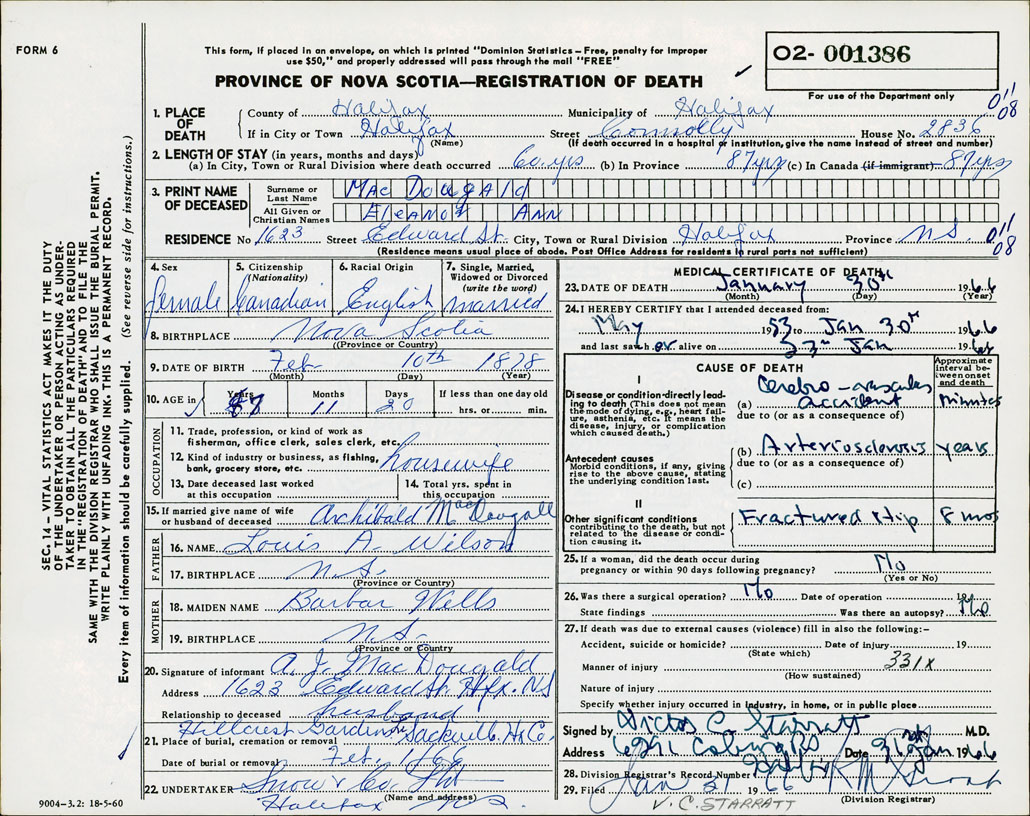 FORM 6
This form, if placed in an envelope, on which is printed "Dominion Statistics – Free, penalty for improper
use $50," and properly addressed will pass through the mail "FREE"
02- 001386
For use of the Department only
PROVINCE OF NOVA SCOTIA—REGISTRATION OF DEATH
SEC. 14 – VITAL STATISTICS ACT MAKES IT THE DUTY
OF THE UNDERTAKER OR PERSON ACTING AS UNDER-
TAKER TO OBTAIN ALL THE PARTICULARS REQUIRED
IN THE "REGISTRATION OF DEATH" AND TO FILE THE
SAME WITH THE DIVISION REGISTRAR WHO SHALL ISSUE THE BURIAL PERMIT.
WRITE PLAINLY WITH UNFADING INK. THIS IS A PERMANENT RECORD.
Every item of information should be carefully supplied. (See reverse side for instructions.)
1. PLACE OF DEATH
County of Halifax Municipality of Halifax
011
08
If in City or Town Halifax Street Connolly House No. 2836
(Name) (If death occurred in a hospital or institution, give the name instead of street and number)
2. LENGTH OF STAY (in years, months and days)
(a) In City, Town or Rural Division where death occurred 60 yrs (b) In Province 87 yrs (c) In Canada (if immigrant) 87 yrs
3. PRINT NAME OF DECEASED
Surname or Last Name MacDougald
All Given or Christian Names Eleanor Ann
RESIDENCE No 1623 Street Edward St. City, Town or Rural Division Halifax Province NS
011
08
(Residence means usual place of abode. Post Office Address for residents in rural parts not sufficient)
4. Sex female
5. Citizenship (Nationality) Canadian
6. Racial Origin English
7. Single, Married, Widowed or Divorced (write the word) married
8. BIRTHPLACE Nova Scotia
(Province or Country)
9. DATE OF BIRTH Feb 10th 1878
(Month) (Day) (Year)
10. AGE in Years 87 Months 11 Days 20 If less than one day old
hrs. or min.
OCCUPATION
11. Trade, profession, or kind of work as
fisherman, office clerk, sales clerk, etc.
12. Kind of industry or business, as fishing,
bank, grocery store, etc. housewife
13. Date deceased last worked
at this occupation
14. Total yrs. spent in
this occupation
15. If married give name of wife
or husband of deceased Archibald MacDougall
FATHER
16. NAME Louis A. Wilson
17. BIRTHPLACE N.S.
(Province or Country)
MOTHER
18. MAIDEN NAME Barbar Wells
19. BIRTHPLACE N.S.
(Province or Country)
20. Signature of informant A. J. MacDougald
Address 1623 Edward St. Hfx. NS
Relationship to deceased husband
Hillcrest Gardens Sackville Hx Co.
21. Place of burial, cremation or removal
Date of burial or removal Feb. 1 66
22. UNDERTAKER Snow & Co.
(Name and address)
Halifax N.S.
9004–3.2: 18-5-60
MEDICAL CERTIFICATE OF DEATH
23. DATE OF DEATH January 30th 1966
(Month) (Day) (Year)
24. I HEREBY CERTIFY that I attended deceased from:
May 1953 to Jan 30th 1966
and last saw her alive on Jan 1966
CAUSE OF DEATH
Approximate interval between onset and death
I
Disease or condition directly leading to death (This does not mean the mode of dying, e.g., heart failure, asthenia, etc. It means the disease, injury, or complication which caused death.)
(a) Cerebro-vascular accident minutes
due to (or as a consequence of)
Antecedent causes
Morbid conditions, if any, giving rise to the above cause, stating the underlying condition last.
(b) Arteriosclerosis years
due to (or as a consequence of)
(c)
II
Other significant conditions
contributing to the death, but not related to the disease or condition causing it.
Fractured Hip 8 mos
25. If a woman, did the death occur during
pregnancy or within 90 days following pregnancy? No
(Yes or No)
26. Was there a surgical operation? No Date of operation 19
State findings Was there an autopsy? No
27. If death was due to external causes (violence) fill in also the following:–
Accident, suicide or homicide? Date of injury 19
(State which)
Manner of injury 331x
(How sustained)
Nature of injury
Specify whether injury occurred in industry, in home, or in public place
Signed by Victor C Starratt M.D.
Address 6291 Coburg Rd Date 31 Jan 1966
Halifax
28. Division Registrar's Record Number
29. Filed Jan 31 66
(Division Registrar)
V. C. STARRATT